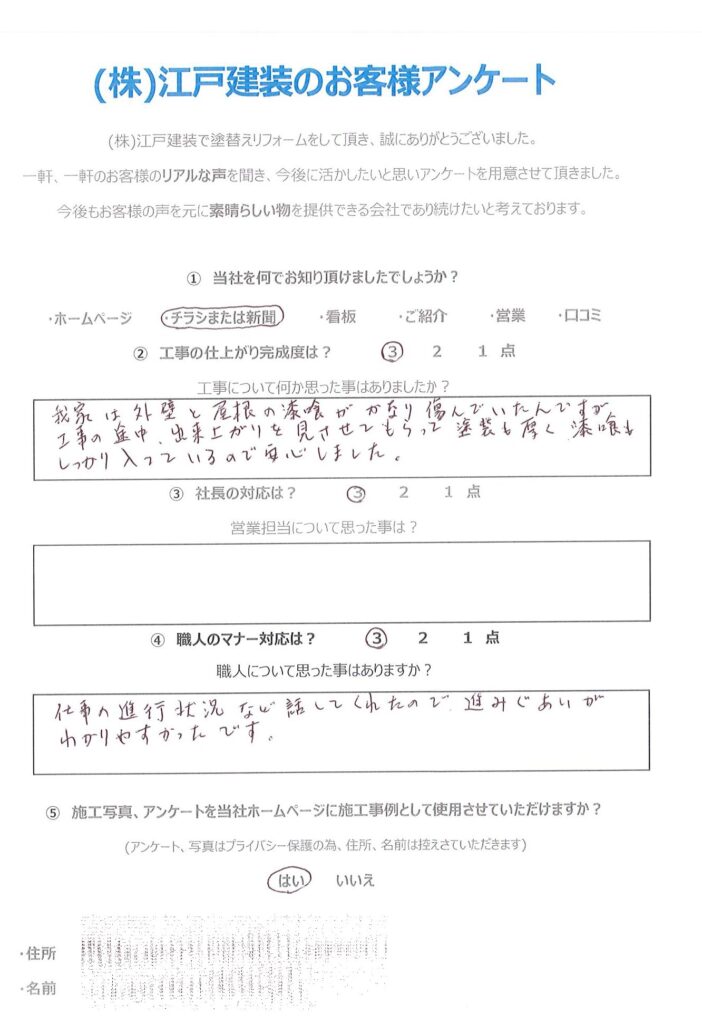 (株)江戸建装のお客様アンケート
(株)江戸建装で塗替えリフォームをして頂き、誠にありがとうございました。
一軒、一軒のお客様のリアルな声を聞き、今後に活かしたいと思いアンケートを用意させて頂きました。
今後もお客様の声を元に素晴らしい物を提供できる会社であり続けたいと考えております。
① 当社を何でお知り頂けましたでしょうか？
・ホームページ ・チラシまたは新聞 ・看板 ・ご紹介 ・営業 ・口コミ
② 工事の仕上がり完成度は？ 3 2 1 点
工事について何か思った事はありましたか？
我家は外壁と屋根の漆喰がかなり傷んでいたんですが
工事の途中、出来上がりを見させてもらって塗装も厚く漆喰も
しっかり入っているので安心しました。
③ 社長の対応は？ 3 2 1 点
営業担当について思った事は？
④ 職人のマナー対応は？ 3 2 1 点
職人について思った事はありますか？
仕事の進行状況など話してくれたので、進みぐあいが
わかりやすかったです。
⑤ 施工写真、アンケートを当社ホームページに施工事例として使用させていただけますか？
(アンケート、写真はプライバシー保護の為、住所、名前は控えさていただきます)
はい いいえ
・住所
・名前